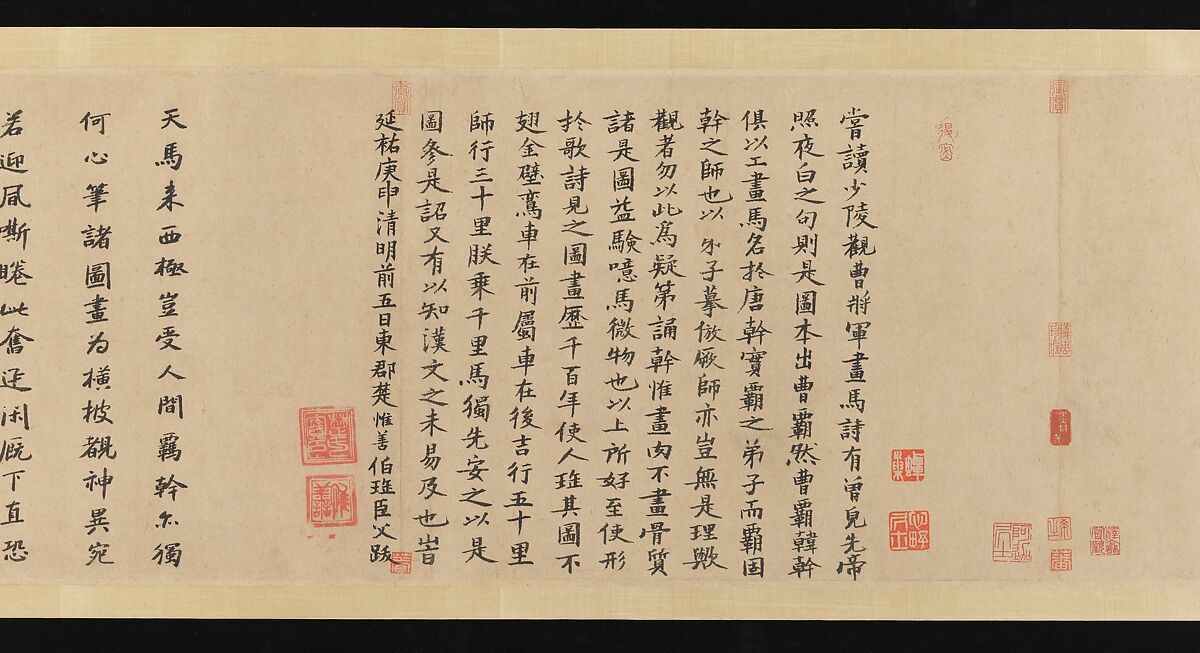 嘗讀少陵觀曹將軍畫馬詩有曾見先帝
照夜白之句則是圖本出曹霸然曹霸韓幹
俱以工畫馬名於唐幹實霸之弟子而霸固
幹之師也以弟子摹倣厥師亦豈無是理歟
觀者勿以此為疑第誦幹惟畫肉不畫骨質
諸是圖益驗噫馬微物也以上所好至使形
於歌詩見之圖畫歷千百年使人珍其圖不
翅金璧鸞車在前屬車在後吉行五十里
師行三十里朕乘千里馬獨先安之以是
圖參是詔又有以知漢文之未易及也旹
延祐庚申清明前五日東郡楚惟善伯珍臣父跋
天馬来西極豈受人間羈幹尒獨
何心筆諸圖畫为橫披覩神異宛
若迎風嘶睠此奮迅闲厩下直恐